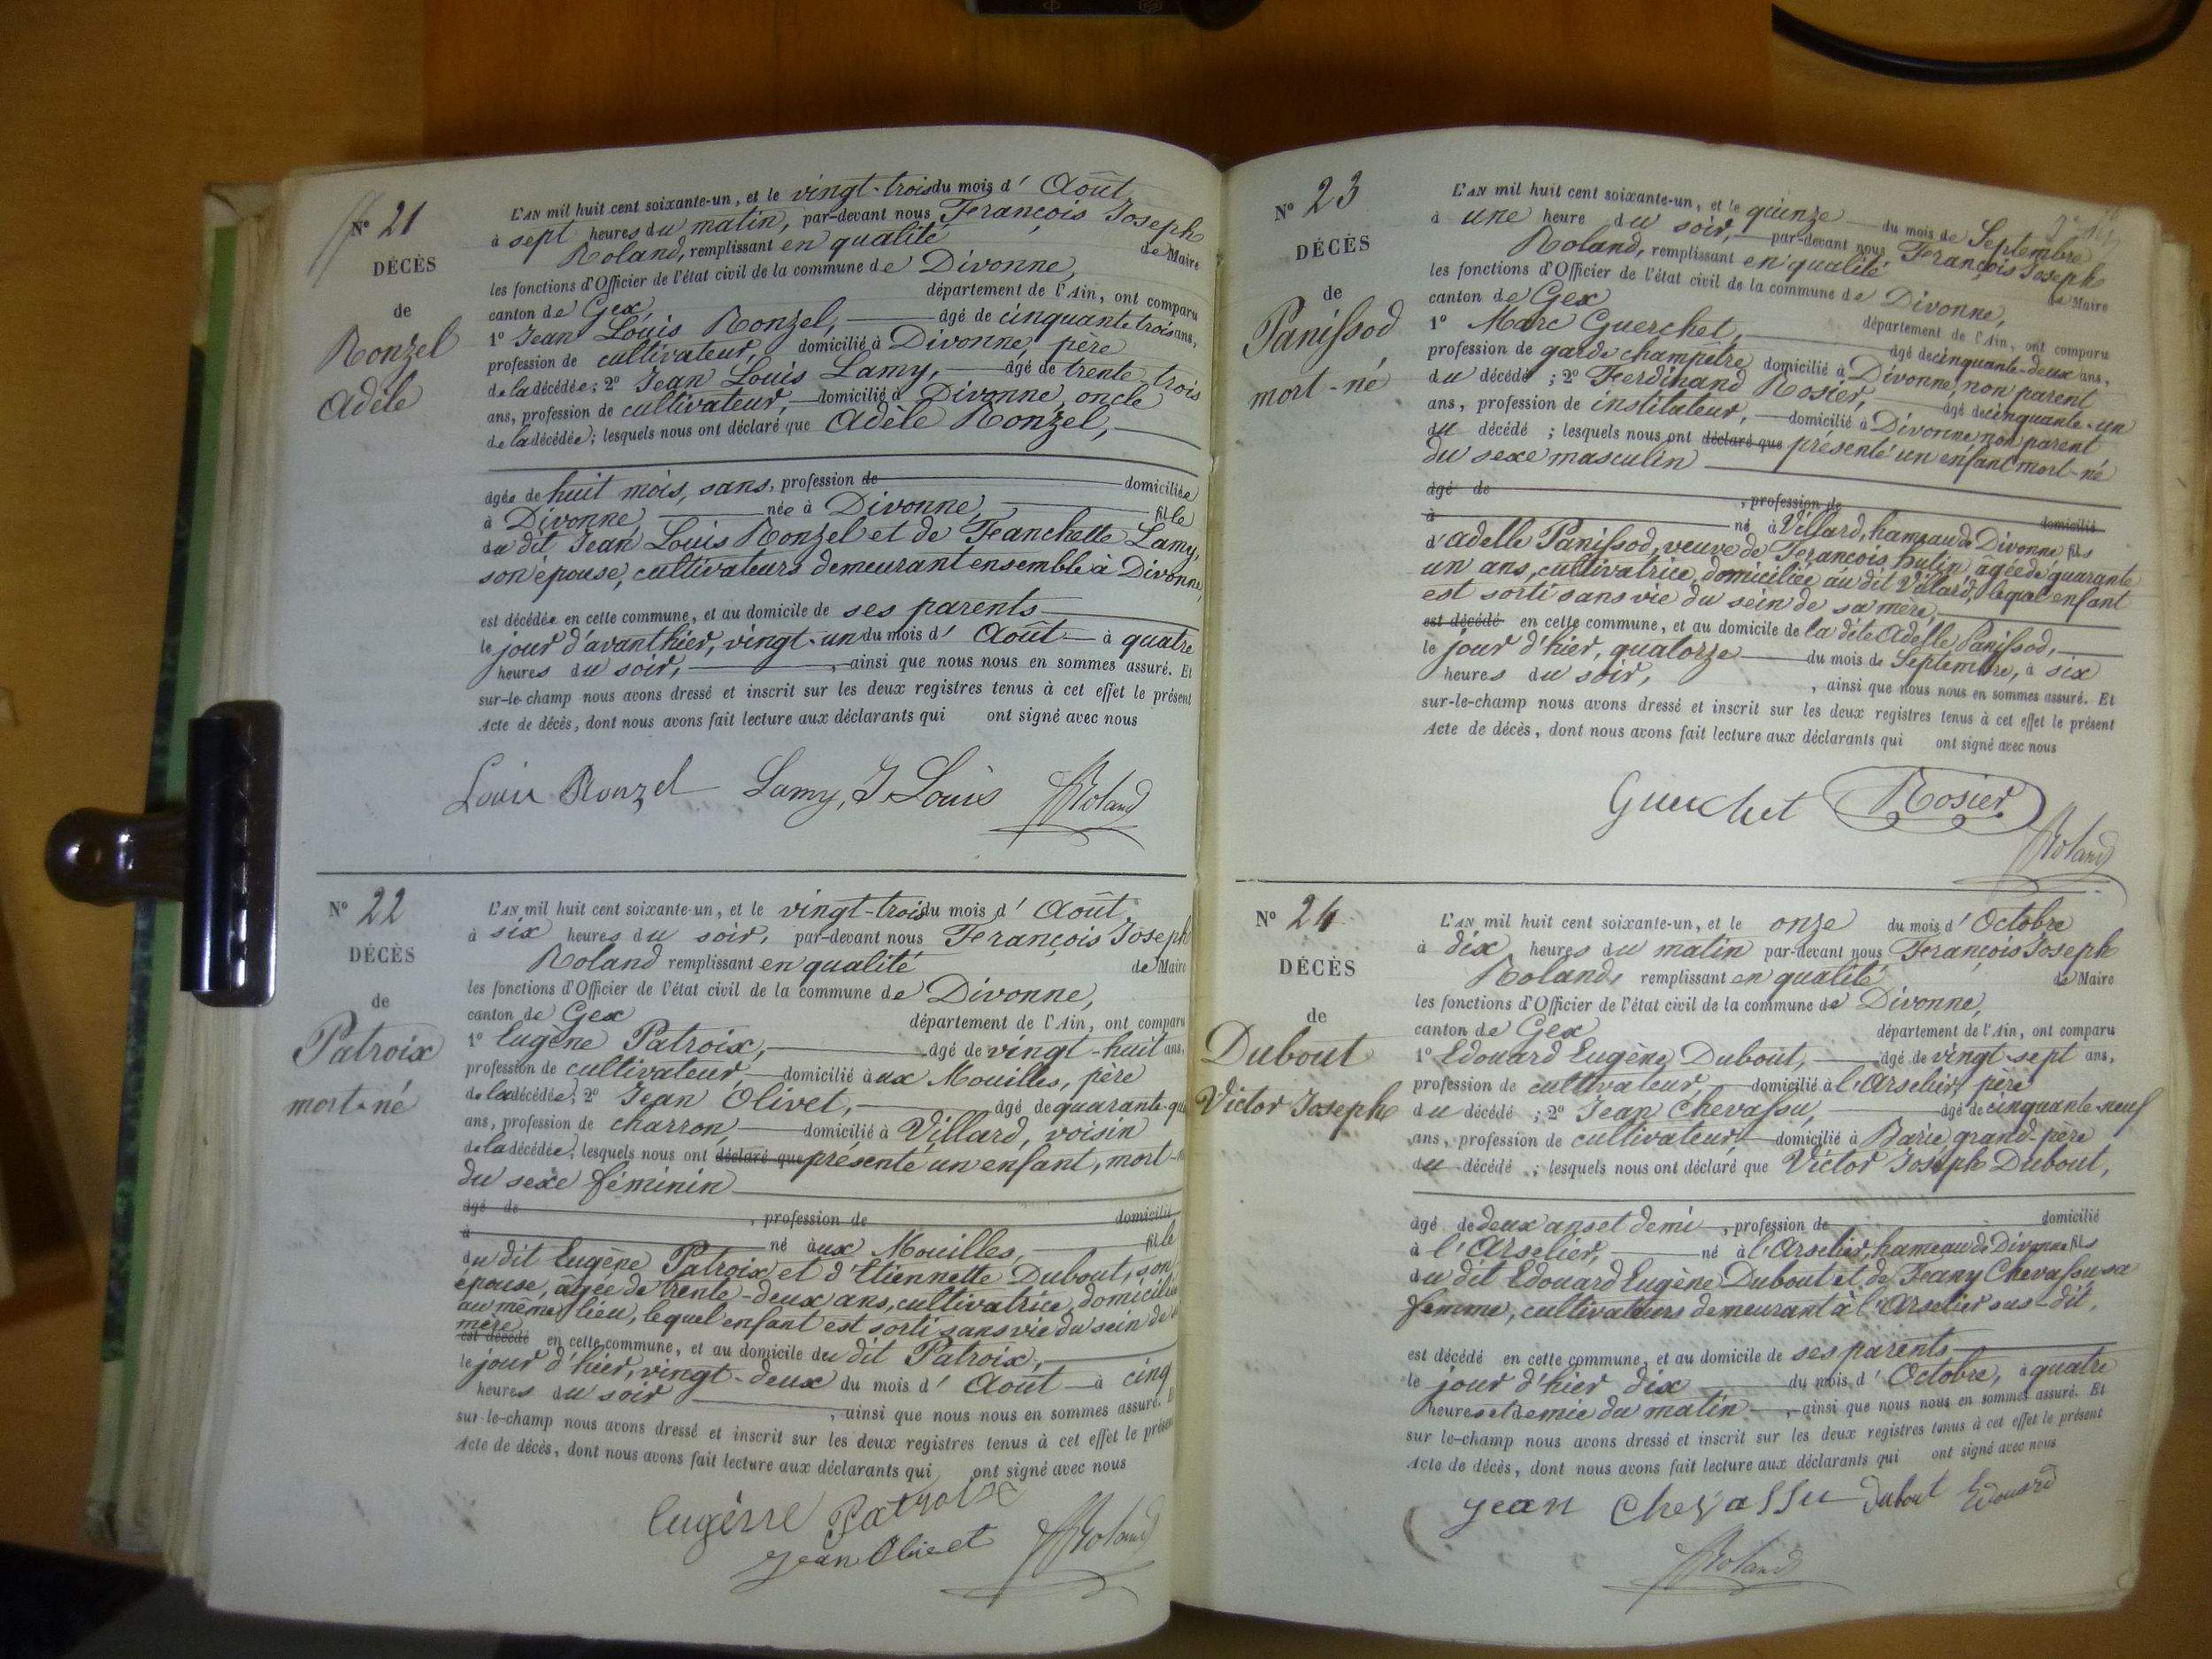 N° 21
DÉCÈS
de
Ronzel
Adèle
L'AN mil huit cent soixante-un, et le vingt-trois du mois d' Août
à sept heures du matin, par-devant nous François Joseph
Roland, remplissant en qualité de Maire
les fonctions d'Officier de l'état civil de la commune de Divonne,
canton de Gex, département de l'Ain, ont comparu
1° Jean Louis Ronzel, âgé de cinquante trois ans,
profession de cultivateur, domicilié à Divonne, père
de la décédée; 2° Jean Louis Lamy, âgé de trente trois
ans, profession de cultivateur, domicilié à Divonne, oncle
de la décédée; lesquels nous ont déclaré que Adèle Ronzel,
âgée de huit mois, sans, profession de domiciliée
à Divonne, née à Divonne, fille
du dit Jean Louis Ronzel et de Jeanchette Lamy,
son épouse, cultivateurs demeurant ensemble à Divonne,
est décédée en cette commune, et au domicile de ses parents
le jour d'avant hier, vingt-un du mois d' Août à quatre
heures du soir, , ainsi que nous nous en sommes assuré. Et
sur-le-champ nous avons dressé et inscrit sur les deux registres tenus à cet effet le présent
Acte de décès, dont nous avons fait lecture aux déclarants qui ont signé avec nous
Louis Ronzel Lamy, J Louis Roland
N° 22
DÉCÈS
de
Patroix
mort-né
L'AN mil huit cent soixante-un, et le vingt-trois du mois d' Août
à six heures du soir, par-devant nous François Joseph
Roland remplissant en qualité de Maire
les fonctions d'Officier de l'état civil de la commune de Divonne,
canton de Gex département de l'Ain, ont comparu
1° Eugène Patroix, âgé de vingt-huit ans,
profession de cultivateur, domicilié aux Mouilles, père
de la décédée; 2° Jean Olivet, âgé de quarante-
ans, profession de charron, domicilié à Villard, voisin
de la décédée; lesquels nous ont déclaré que présenté un enfant, mort-
du sexe féminin
âgé de , profession de domicilié
à né aux Mouilles, fille
du dit Eugène Patroix et d'Etiennette Dubout, son
épouse, âgée de trente-deux ans, cultivatrice, domiciliée
au même lieu, lequel enfant est sorti sans vie du sein de
mère
est décédé en cette commune, et au domicile du dit Patroix,
le jour d'hier, vingt-deux du mois d' Août à cinq
heures du soir , ainsi que nous nous en sommes assuré.
sur-le-champ nous avons dressé et inscrit sur les deux registres tenus à cet effet le présent
Acte de décès, dont nous avons fait lecture aux déclarants qui ont signé avec nous
Eugène Patroix
Jean Olivet Roland
N° 23
DÉCÈS
de
Panissod
mort-né
L'AN mil huit cent soixante-un, et le quinze du mois de Septembre
à une heure du soir, par-devant nous François Joseph
Roland, remplissant en qualité de Maire
les fonctions d'Officier de l'état civil de la commune de Divonne,
canton de Gex département de l'Ain, ont comparu
1° Marc Guerchet, âgé de cinquante-deux ans,
profession de garde champêtre domicilié à Divonne, non parent
du décédé ; 2° Ferdinand Rosier, âgé de cinquante-un
ans, profession de instituteur, domicilié à Divonne non parent
du décédé ; lesquels nous ont déclaré que présenté un enfant mort-né
du sexe masculin
âgé de , profession de domicilié
à né à Villard, hameau de Divonne fils
d'adelle Panissod, veuve de François hutin, agée de quarante
un ans, cultivatrice, domiciliée au dit Villard, lequel enfant
est sorti sans vie du sein de sa mère,
est décédé en cette commune, et au domicile de la dite Adelle Panissod,
le jour d'hier, quatorze du mois de Septembre, à six
heures du soir, , ainsi que nous nous en sommes assuré. Et
sur-le-champ nous avons dressé et inscrit sur les deux registres tenus à cet effet le présent
Acte de décès, dont nous avons fait lecture aux déclarants qui ont signé avec nous
Guerchet Rosier
Roland
N° 24
DÉCÈS
de
Dubout
Victor Joseph
L'AN mil huit cent soixante-un, et le onze du mois d' Octobre
à dix heures du matin par-devant nous François Joseph
Roland, remplissant en qualité de Maire
les fonctions d'Officier de l'état civil de la commune de Divonne,
canton de Gex département de l'Ain, ont comparu
1° Edouard Eugène Dubout, âgé de vingt-sept ans,
profession de cultivateur, domicilié à l'Arselier, père
du décédé ; 2° Jean Chevassu, âgé de cinquante-neuf
ans, profession de cultivateur domicilié à grand-père
du décédé ; lesquels nous ont déclaré que Victor Joseph Dubout,
âgé de deux ans et demi , profession de domicilié
à l'Arselier, né à l'Arselier, hameau de Divonne fils
du dit Edouard Eugène Dubout et de Jeany Chevassu sa
femme, cultivateurs demeurant à l'Arselier sus-dit,
est décédé en cette commune, et au domicile de ses parents
le jour d'hier dix du mois d' Octobre, à quatre
heures et demie du matin , ainsi que nous nous en sommes assuré. Et
sur le-champ nous avons dressé et inscrit sur les deux registres tenus à cet effet le présent
Acte de décès, dont nous avons fait lecture aux déclarants qui ont signé avec nous
Jean Chevassu Dubout Edouard
Roland